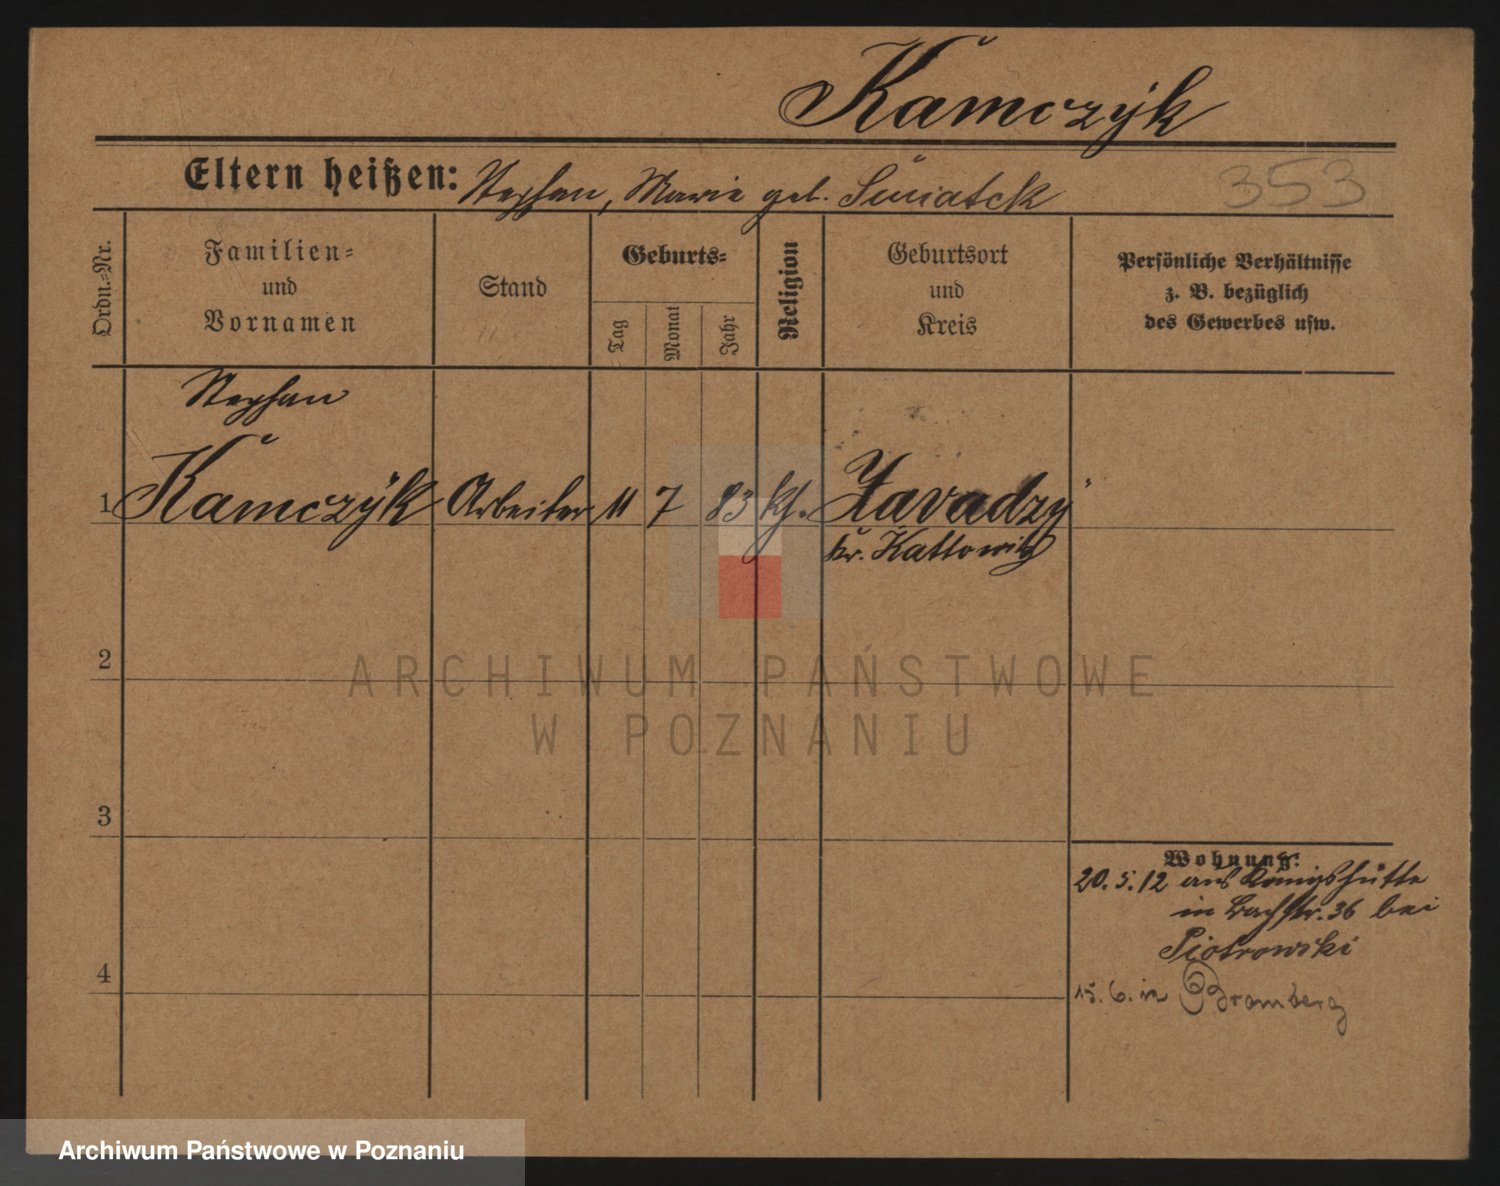 Kamczyk
Eltern heißen: Stephan, Marie geb. Swiatek
353
Ordn.-Nr.
Familien-
und
Vornamen
Stand
Geburts-
Tag
Monat
Jahr
Religion
Geburtsort
und
Kreis
Persönliche Verhältnisse
z. B. bezüglich
des Gewerbes usw.
Stephan
1 Kamczyk Arbeiter 11 7 83 kth. Zavadzy
kr. Kattowitz
2
ARCHIWUM PAŃSTWOWE
W POZNANIU
3
Wohnung:
20. 5. 12 aus Königshütte
in Bachstr. 36 bei
Piotrowski
4
15. 6. in Bromberg
Archiwum Państwowe w Poznaniu